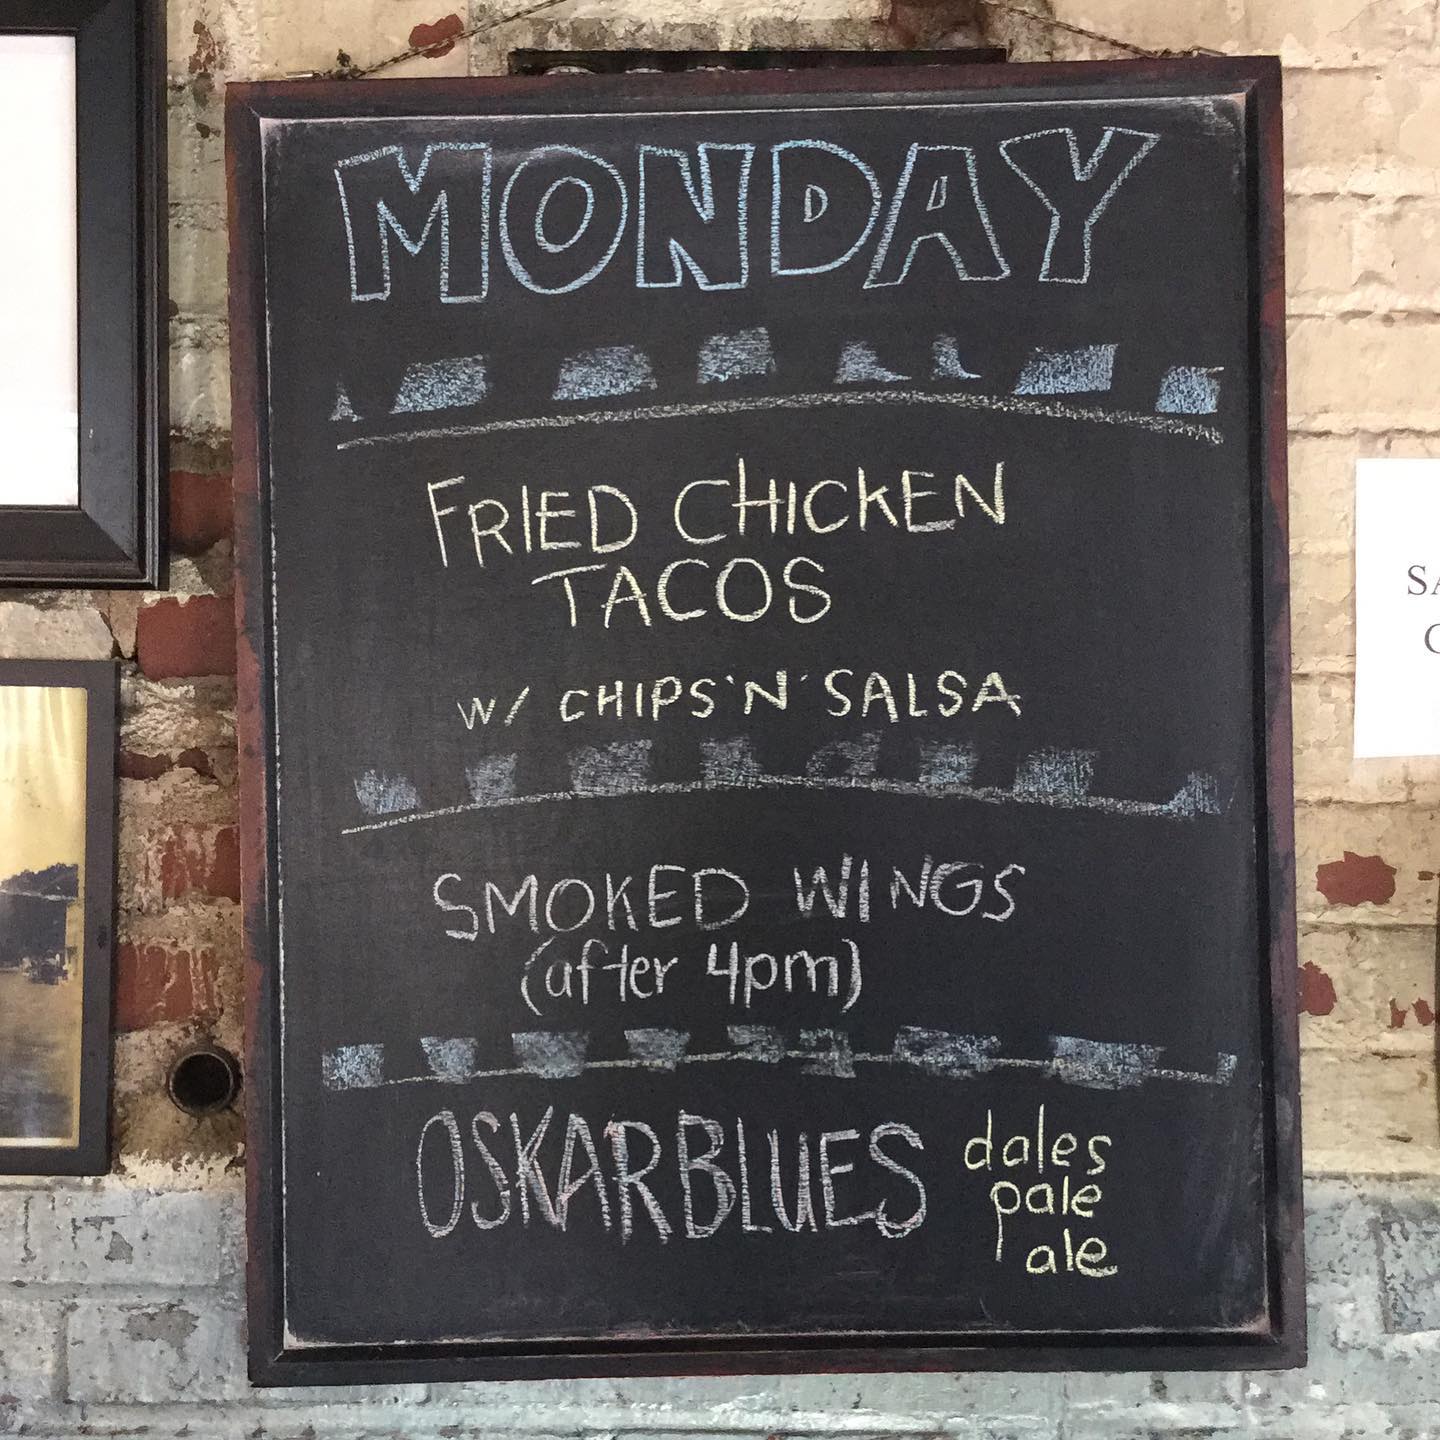 MONDAY
FRIED CHICKEN
TACOS
W/ CHIPS'N'SALSA
SMOKED WINGS
(after 4pm)
OSKARBLUES
dales
pale
ale